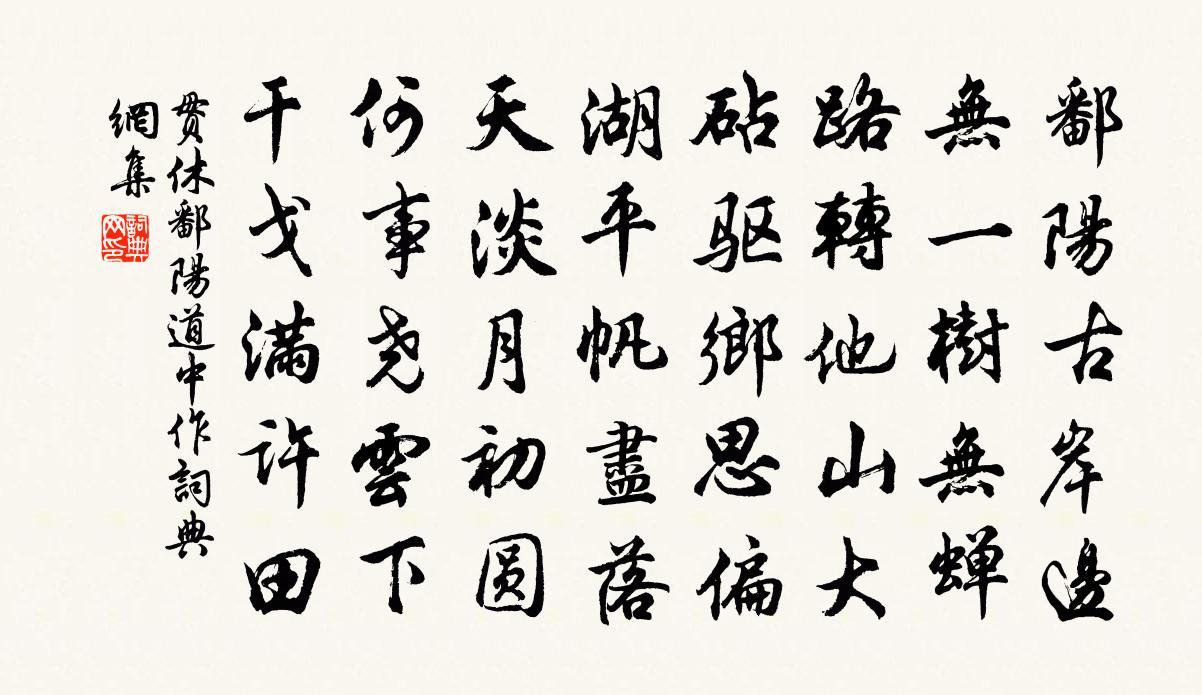 鄱陽古岸邊
無一樹無蟬
路轉他山大
砧驱鄉思偏
湖平帆盡落
天淡月初圆
何事尧雲下
干戈满許田
貫休鄱陽道中作詞典
網集
詞典
网印